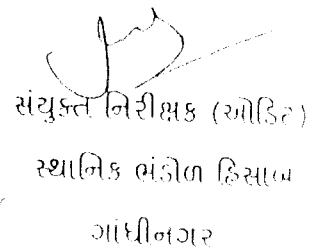 સંયુક્ત નિરીક્ષક (ઓડિટ)
સ્થાનિક ભંડોળ હિસાબ
ગાંધીનગર